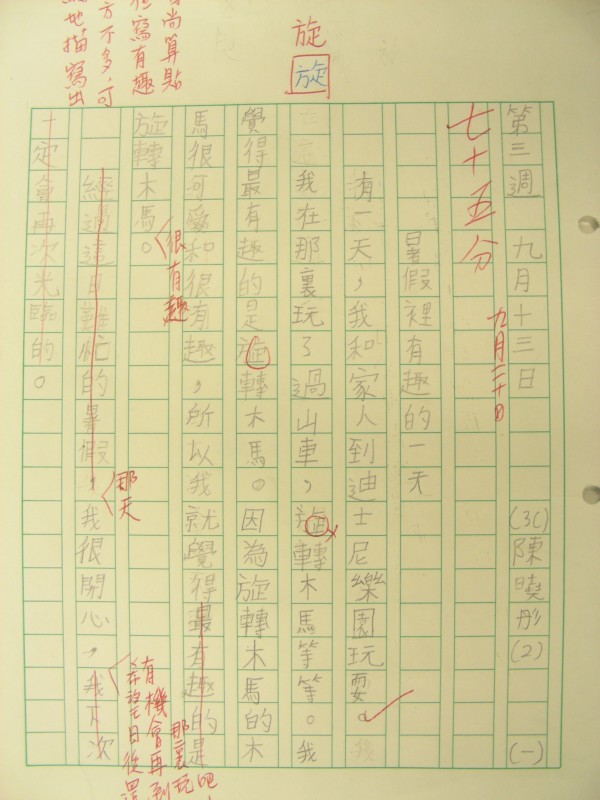 旋
旋
尚算貼
寫有趣
方不多,可
地描寫出
第三週 九月十三日 (3C)陳曉彤(2) (一)
九月二十日
七十五分
暑假裡有趣的一天
有一天,我和家人到迪士尼樂園玩耍。
我在那裏玩了過山車,旋轉木馬等等。我
覺得最有趣的是旋轉木馬。因為旋轉木馬的木
馬很可愛和很有趣,所以我就覺得最有趣的是
很有趣
那裏玩吧
旋轉木馬。
有機會再到
希望日後
經過這日難忙的暑假,我很開心,我下次
那天
一定會再次光臨的。